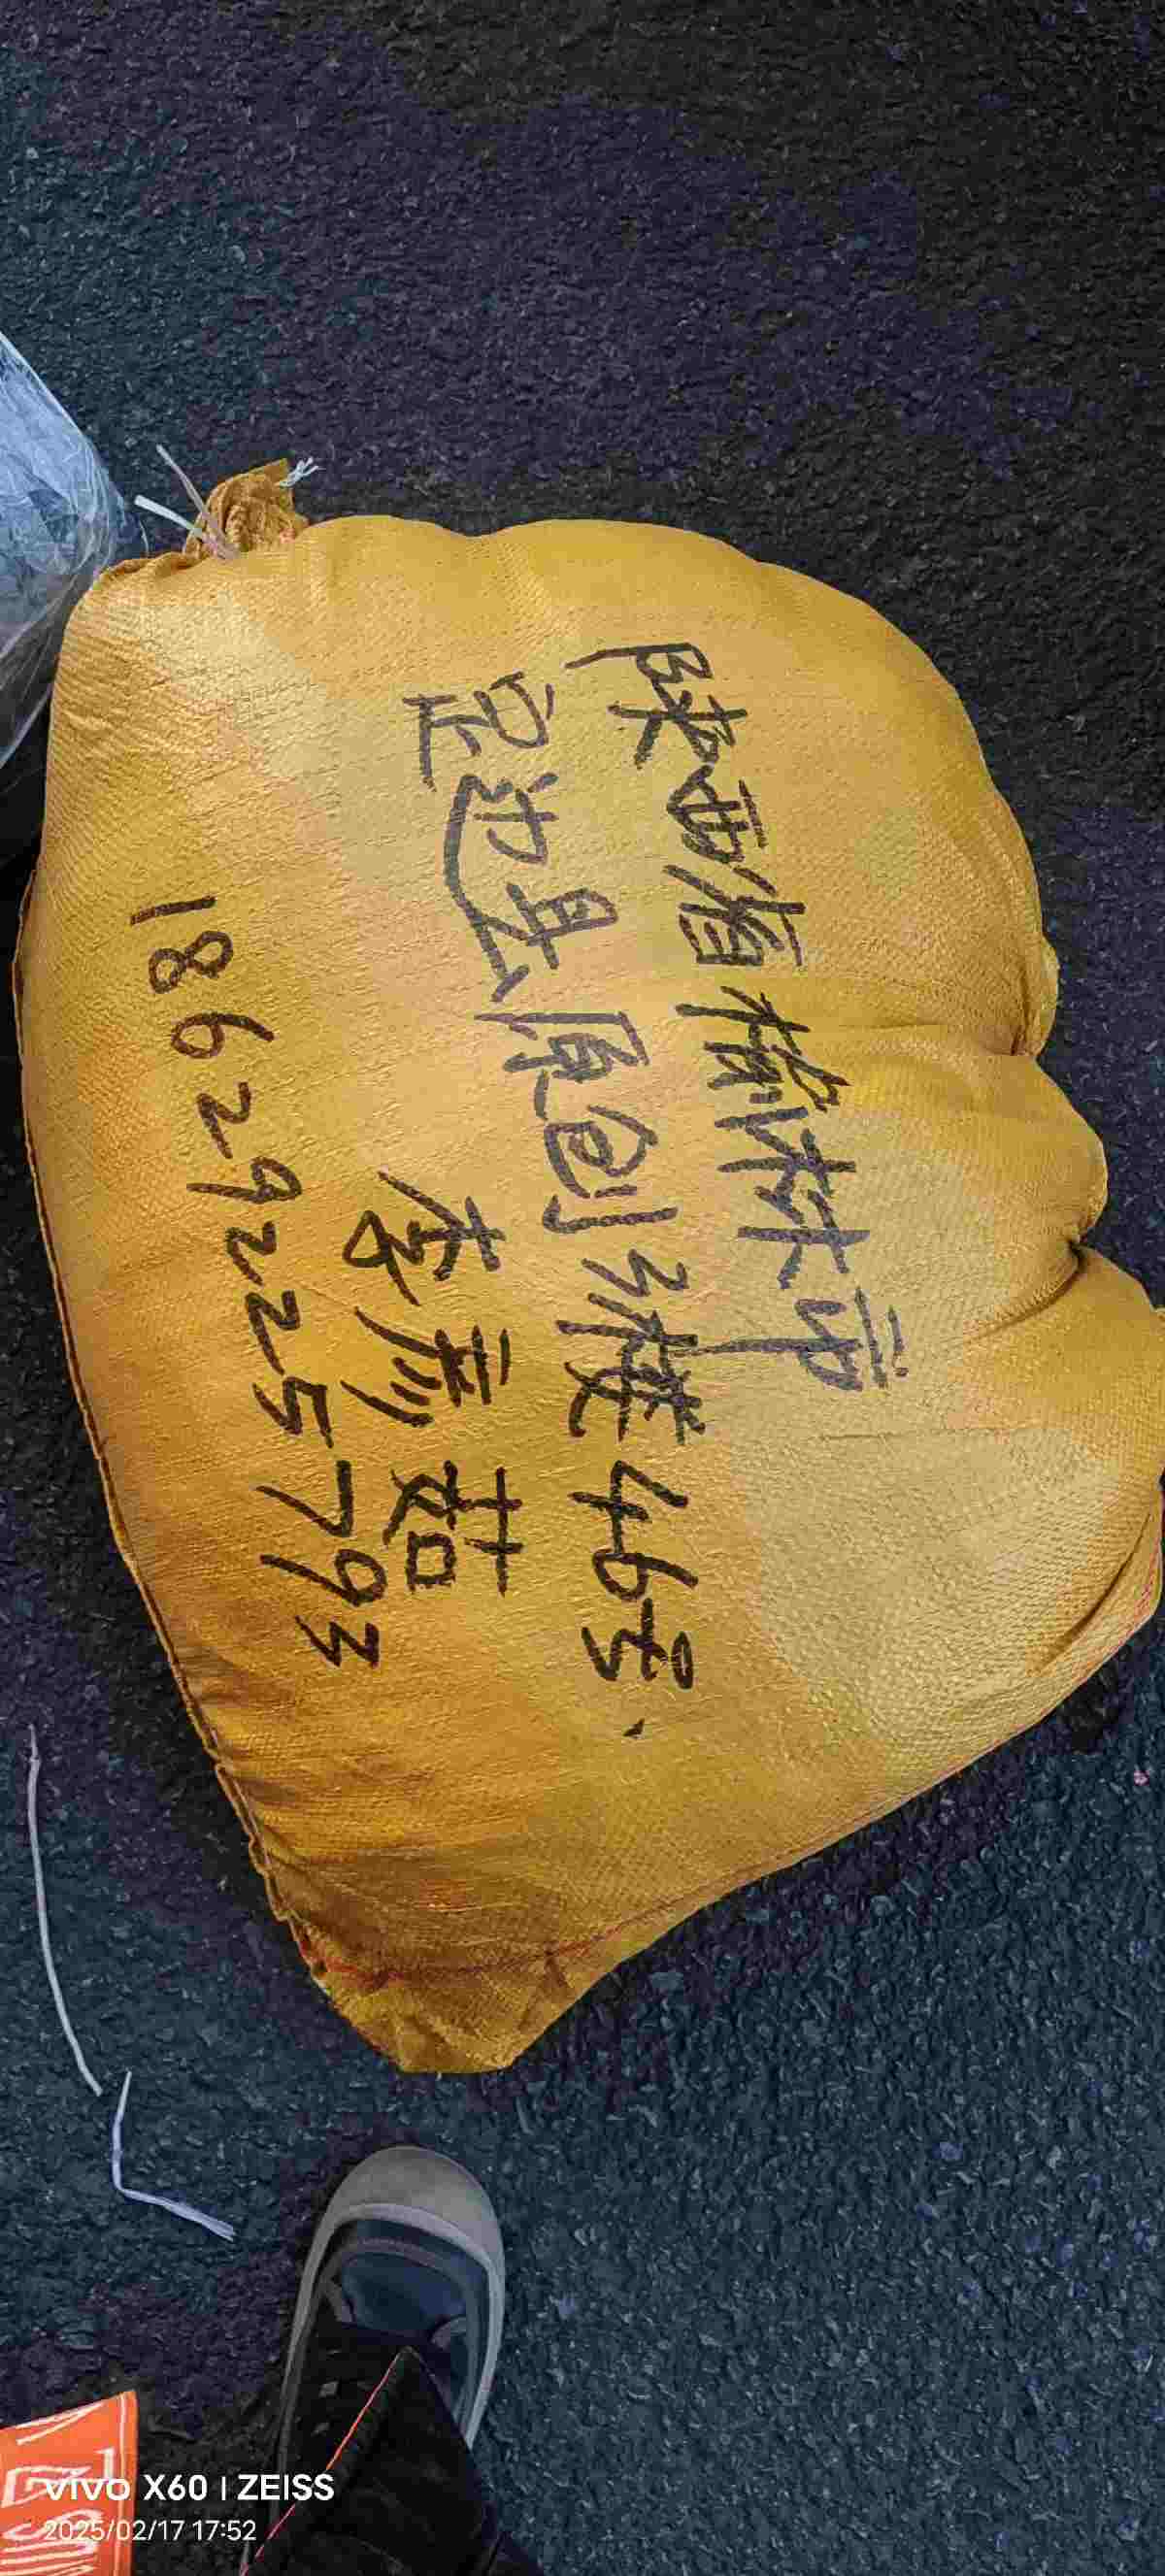 陕西省榆林市
定边县原创纤楼46号.
李彦茹
18629225793
vivo X60 | ZEISS
2025/02/17 17:52